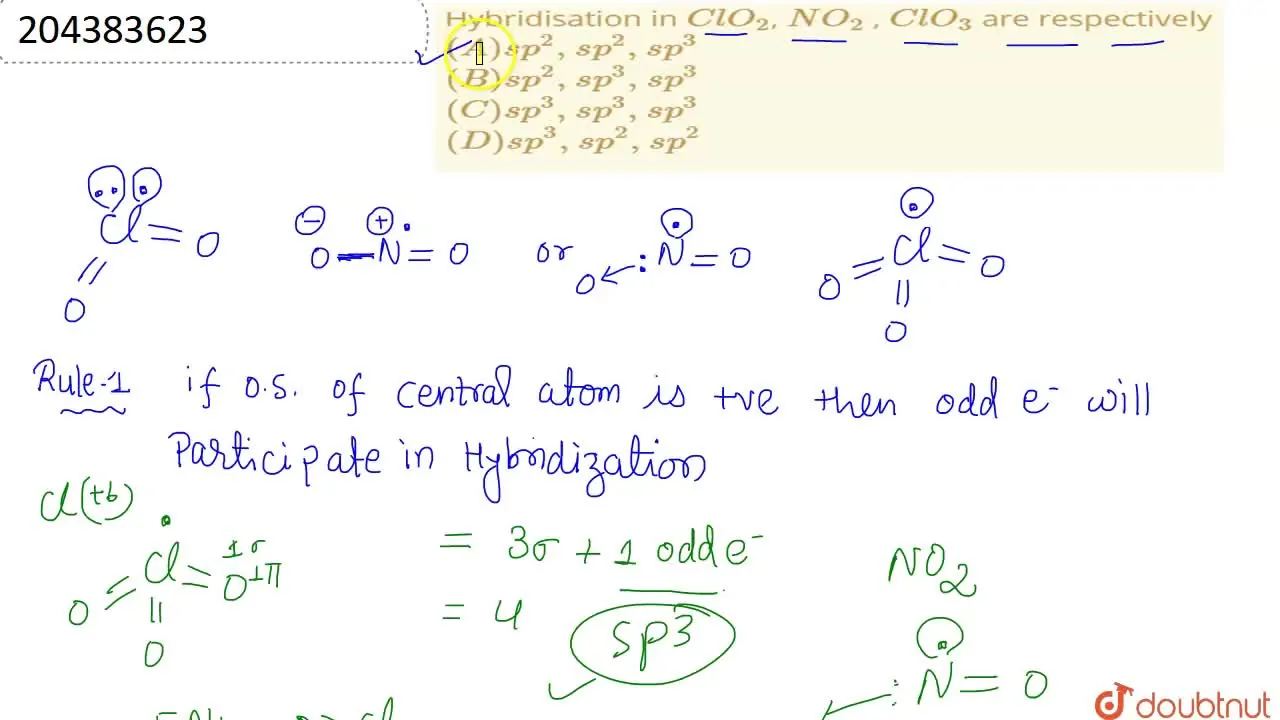 204383623
Hybridisation in ClO₂, NO₂ , ClO₃ are respectively
(A)sp², sp², sp³
(B)sp², sp³, sp³
(C)sp³, sp³, sp³
(D)sp³, sp², sp²
Cl = O
O
⊖ ⊕
O — N = O or O ← : N = O
O = Cl = O
O
Rule-1 if o.s. of central atom is +ve then odd e⁻ will
Participate in Hybridization
Cl(+6)
O = Cl = O 1σ 1π
O
= 3σ + 1 odd e⁻
= 4
sp3
NO₂
: N = O
doubtnut